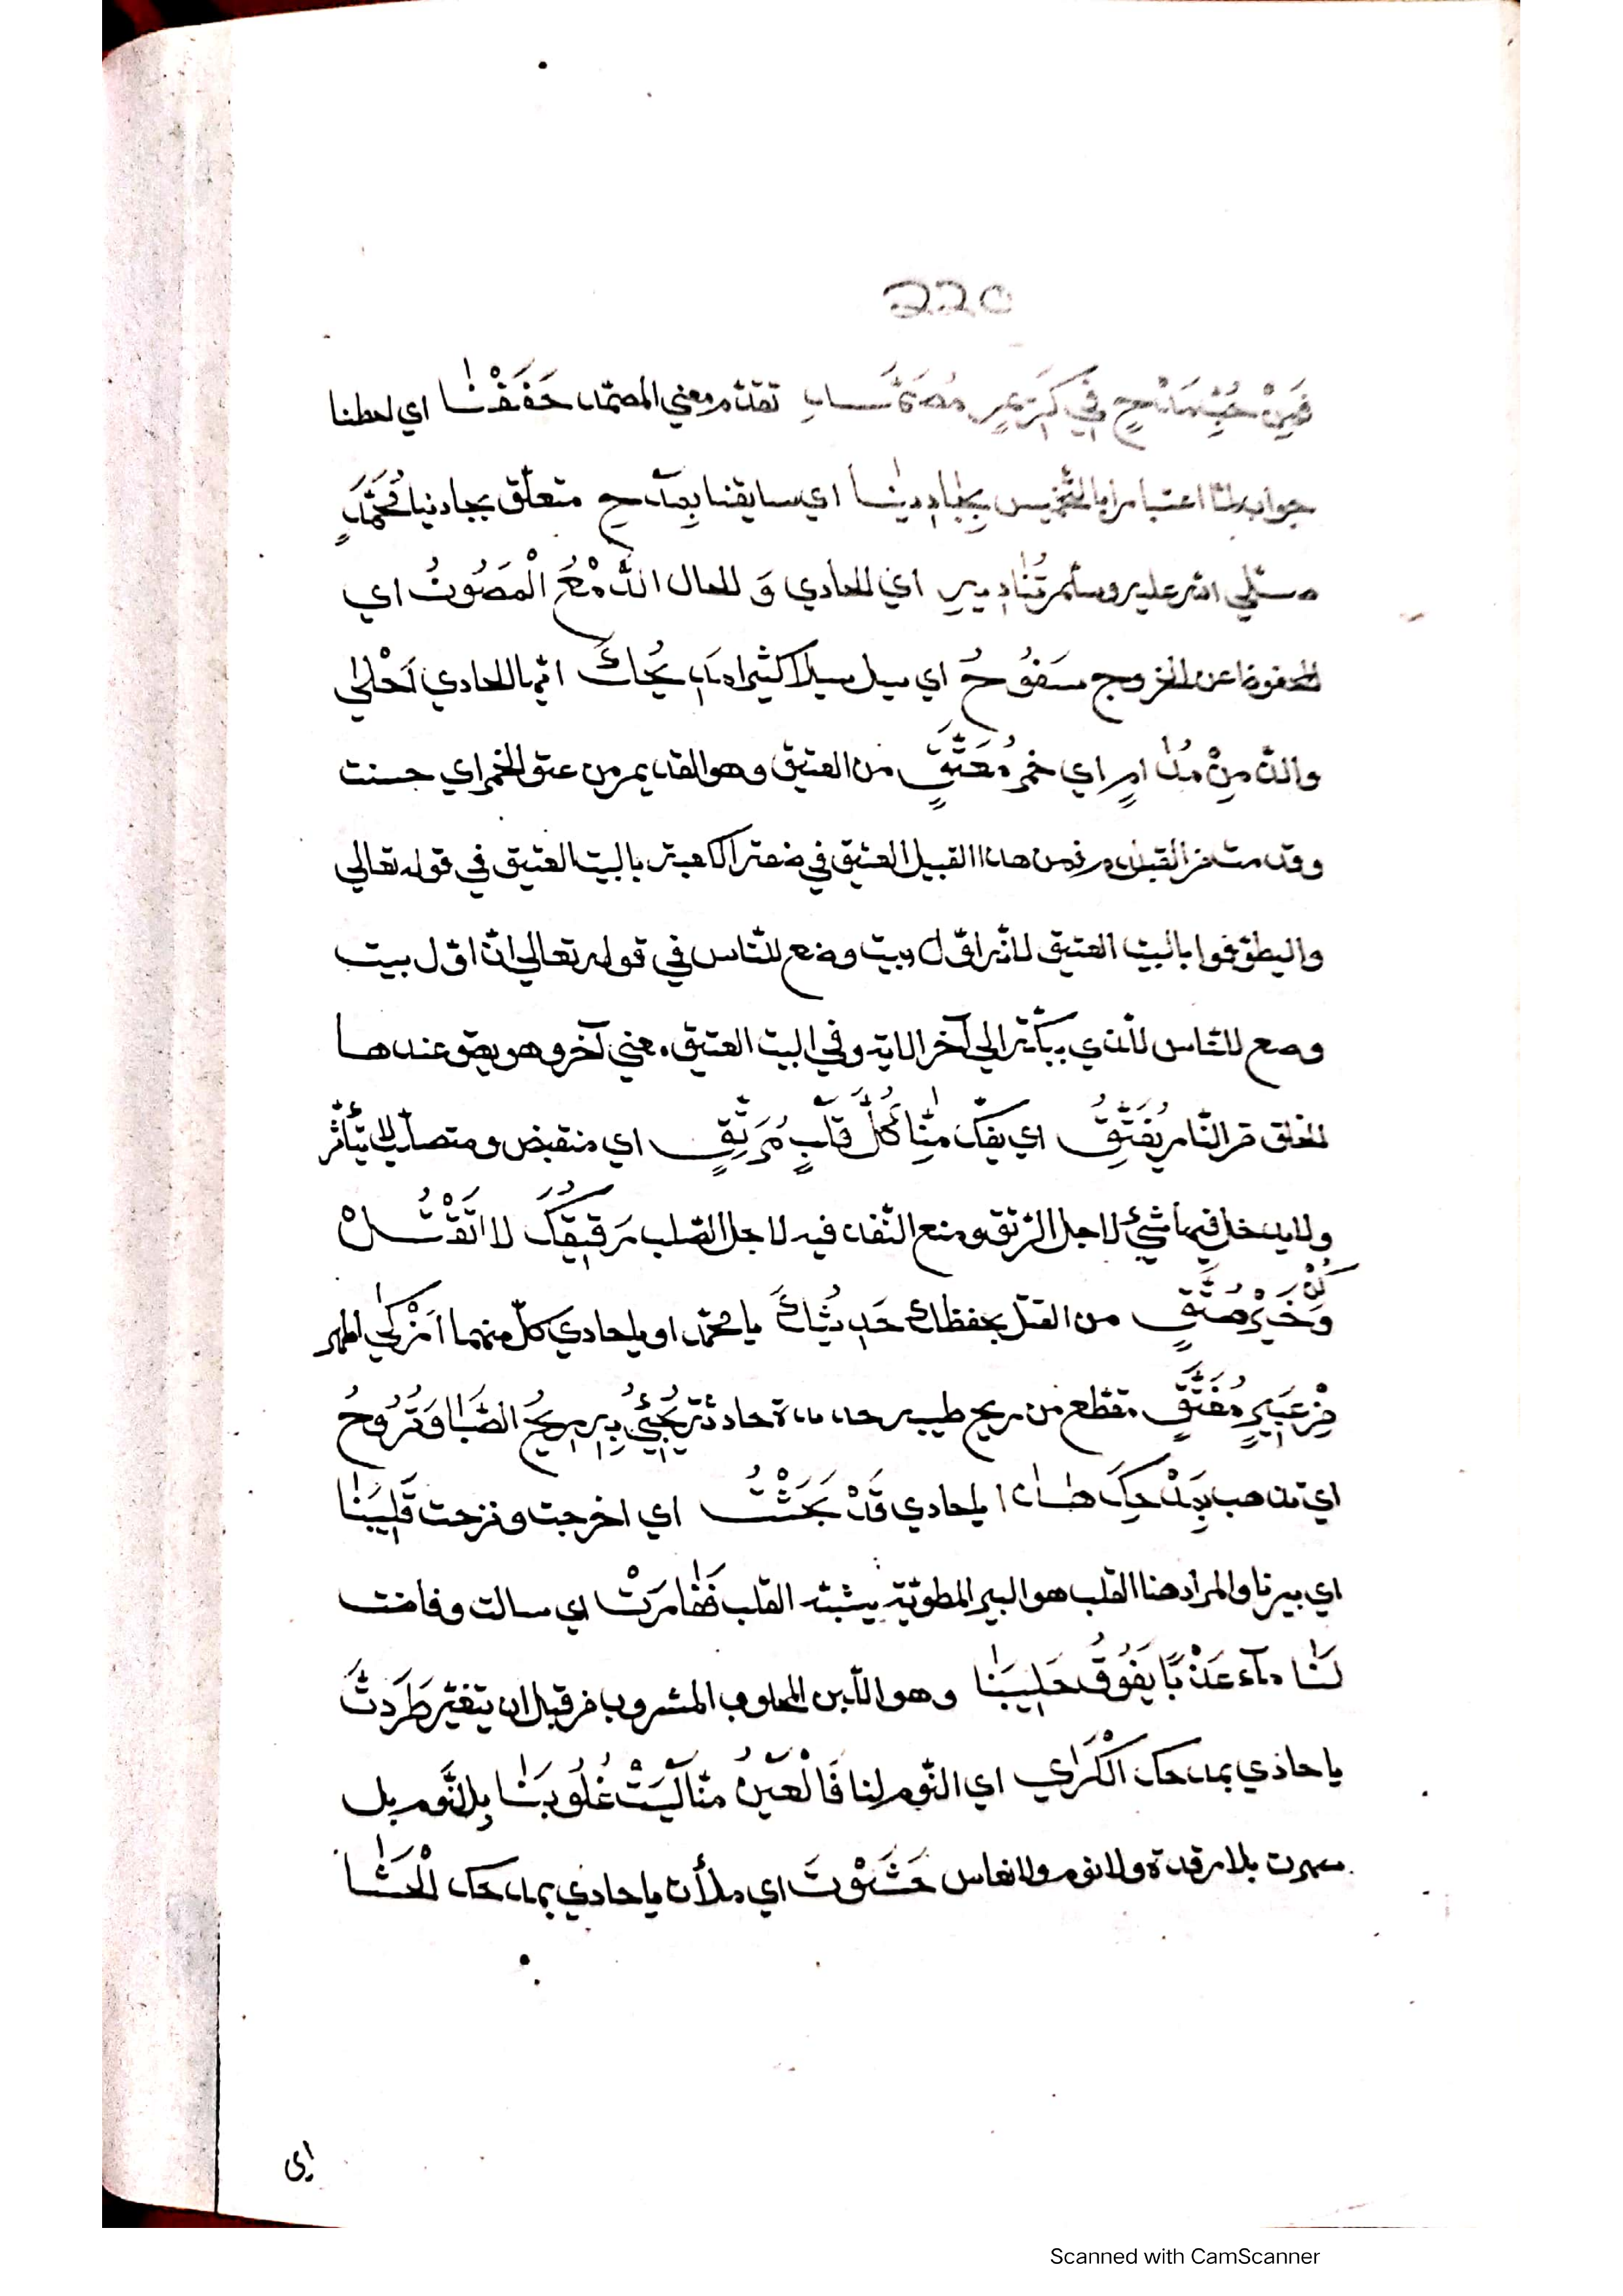 220
فَمِنْ حُبِّ مَدْحٍ فِي كَرِيمٍ مُصَمَّدٍ تقدّم معني المصمّد حَفَفْنَا اي لحطنا
جواب لمّا اعتبارا بالتّخميس بِحَادِينَا اي سايقنا بِمَدْحِ متعلّق بحادنيا مُحَمَّدٍ
صلّي الله عليه وسلّم تُنَادِيهِ اي للحادي وَ للحال الدَّمْعُ الْمَصُونُ اي
المحفوظ عن الخروج سَفُوحُ اي سيل سيلا كثيرا مَدِيحُكَ ايّها الحادي اَحْلَي
والذّ مِنْ مُدَامٍ اي خمر مُعَتَّقٍ من العتيق وهو القديم من عتق الخمر اي حسنت
وقدمت من هذا القبيل العتيق في الكعبة بالبيت العتيق في قوله تعالي
واليطّوّفوا بالبيت العتيق لانّه اوّل بيت وضع للنّاس في قوله تعالي انّ اوّل بيت
وضع للنّاس للّذي ببكّة الي آخر الاية وفي البيت العتيق معني آخر وهو يعتق عندها
يُفَتِّقُ اي يفكّ مِنَّا كُلَّ قَلْبٍ مُرَتَّقٍ اي منقبض ومتصلّب لا يتأثّر
ولا يدخل فيها شيئ لاجل الرّتق ومنع النّفاذ فيه لاجل الصّلب رَقِيقُكَ لا اتُقْتَلْ
كُنْ
وَخَيْرُ مُتَّقٍ من القتل بحفظك حَدِيثُكَ يا محمّد او يا حادي كلّ منهما اَزْكَي اطهر
مِنْ عَبِيرٍ مُفَتَّقٍ مقطّع من ريح طيب حادثة يُجِيئُ بِهِ رِيحُ الصَّبَا وَتَرُوحُ
اي تذهب بِمَدْحِكَ هذا يا حادي قَدْ بَحَثْتَ اي اخرجت ونزحت قَلِيبَنَا
اي بيرنا والمراد هنا القلب هو البير المطويّة يشبّه القلب فَفَارَتْ اي سالت وفاضت
لَنَا مآءً عَذْبًا يَفُوقُ حَلِيبَنَا وهو اللّبن المحلوب المشروب من قبل ان يتغيّر طَرَدتَّ
يا حادي بمدحك الْكَرَي اي النّوم لنا فَالْعَيْنُ منّا لَيْسَتْ غُلُوبَنَا بالنّوم بل
سهرت بلا رقدة ولا نوم ولا نعاس حَشَوْتَ اي ملأت يا حادي بمدحك الْحَشَا
اي
Scanned with CamScanner